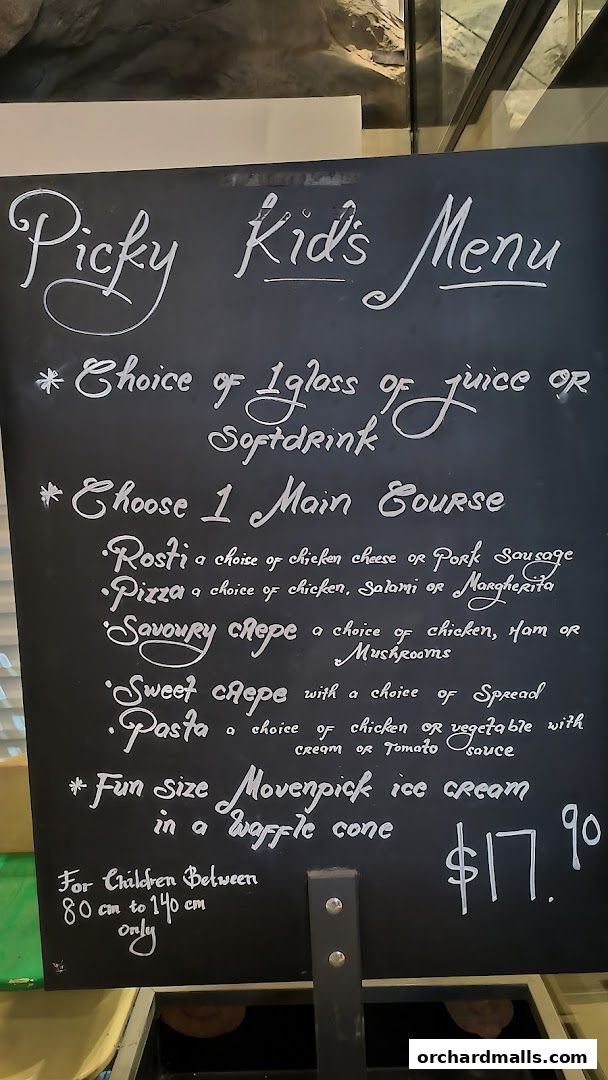 Picky Kid's Menu
* Choice of 1 glass of juice or
softdrink
* Choose 1 Main Course
• Rosti a choise of chicken cheese or Pork Sausage
• Pizza a choice of chicken, Salami or Margherita
• Savoury crepe a choice of chicken, Ham or
Mushrooms
• Sweet crepe with a choice of Spread
• Pasta a choice of chicken or vegetable with
cream or Tomato sauce
* Fun size Movenpick ice cream
in a waffle cone
$17.90
For Children Between
80 cm to 140 cm
only
orchardmalls.com